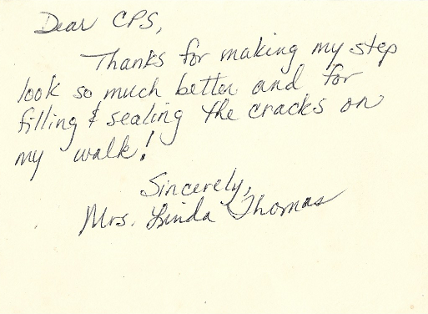 Dear CPS,
Thanks for making my step
look so much better and for
filling & sealing the cracks on
my walk!
Sincerely,
Mrs. Linda Thomas